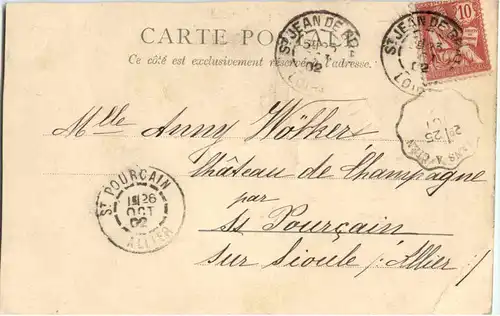 CARTE POSTALE
Ce côté est exclusivement réservé à l'adresse.
ST JEAN DE
02
LOIR
ST JEAN DE
02
LOIR
10
25
Mlle Anny Wölkers
Château de Champagne
par
St Pourçain
sur Sioule (Allier)
ST POURÇAIN
26
OCT
02
ALLIER